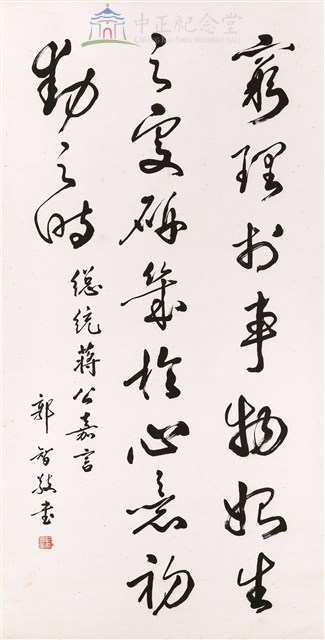 中正紀念堂
窮理於事物始生
之處研幾於心意初
動之時
總統蔣公嘉言
郭智書